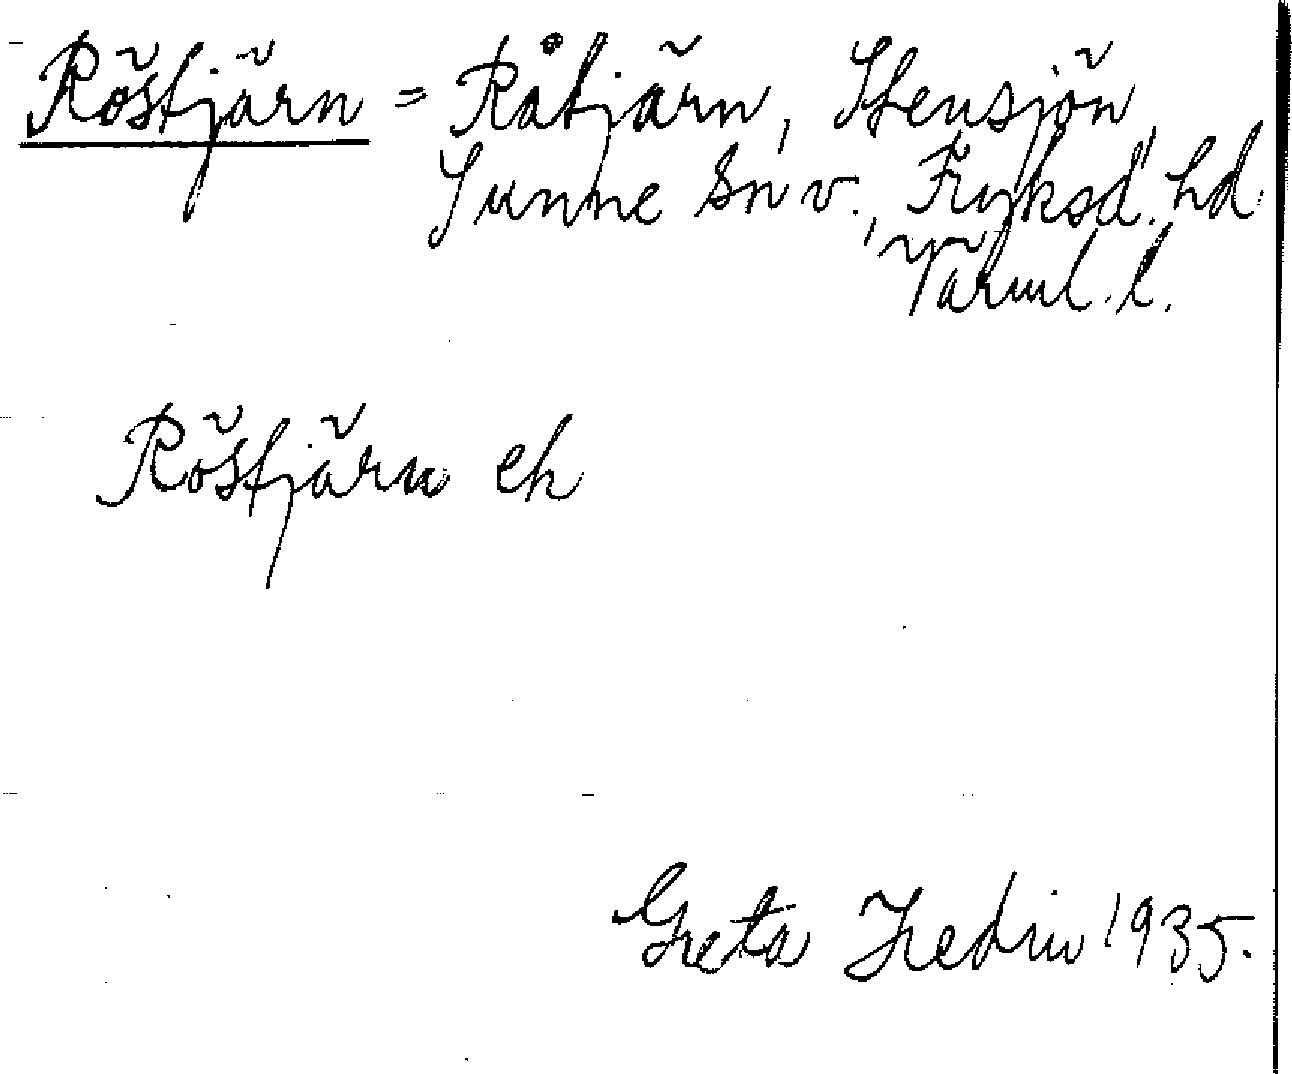 Röstjärn = Råtjärn, Stensjön,
Sunne sn v., Fryksd. hd
Värml. l.
Röstjärn ek
Greta Hedin 1935.